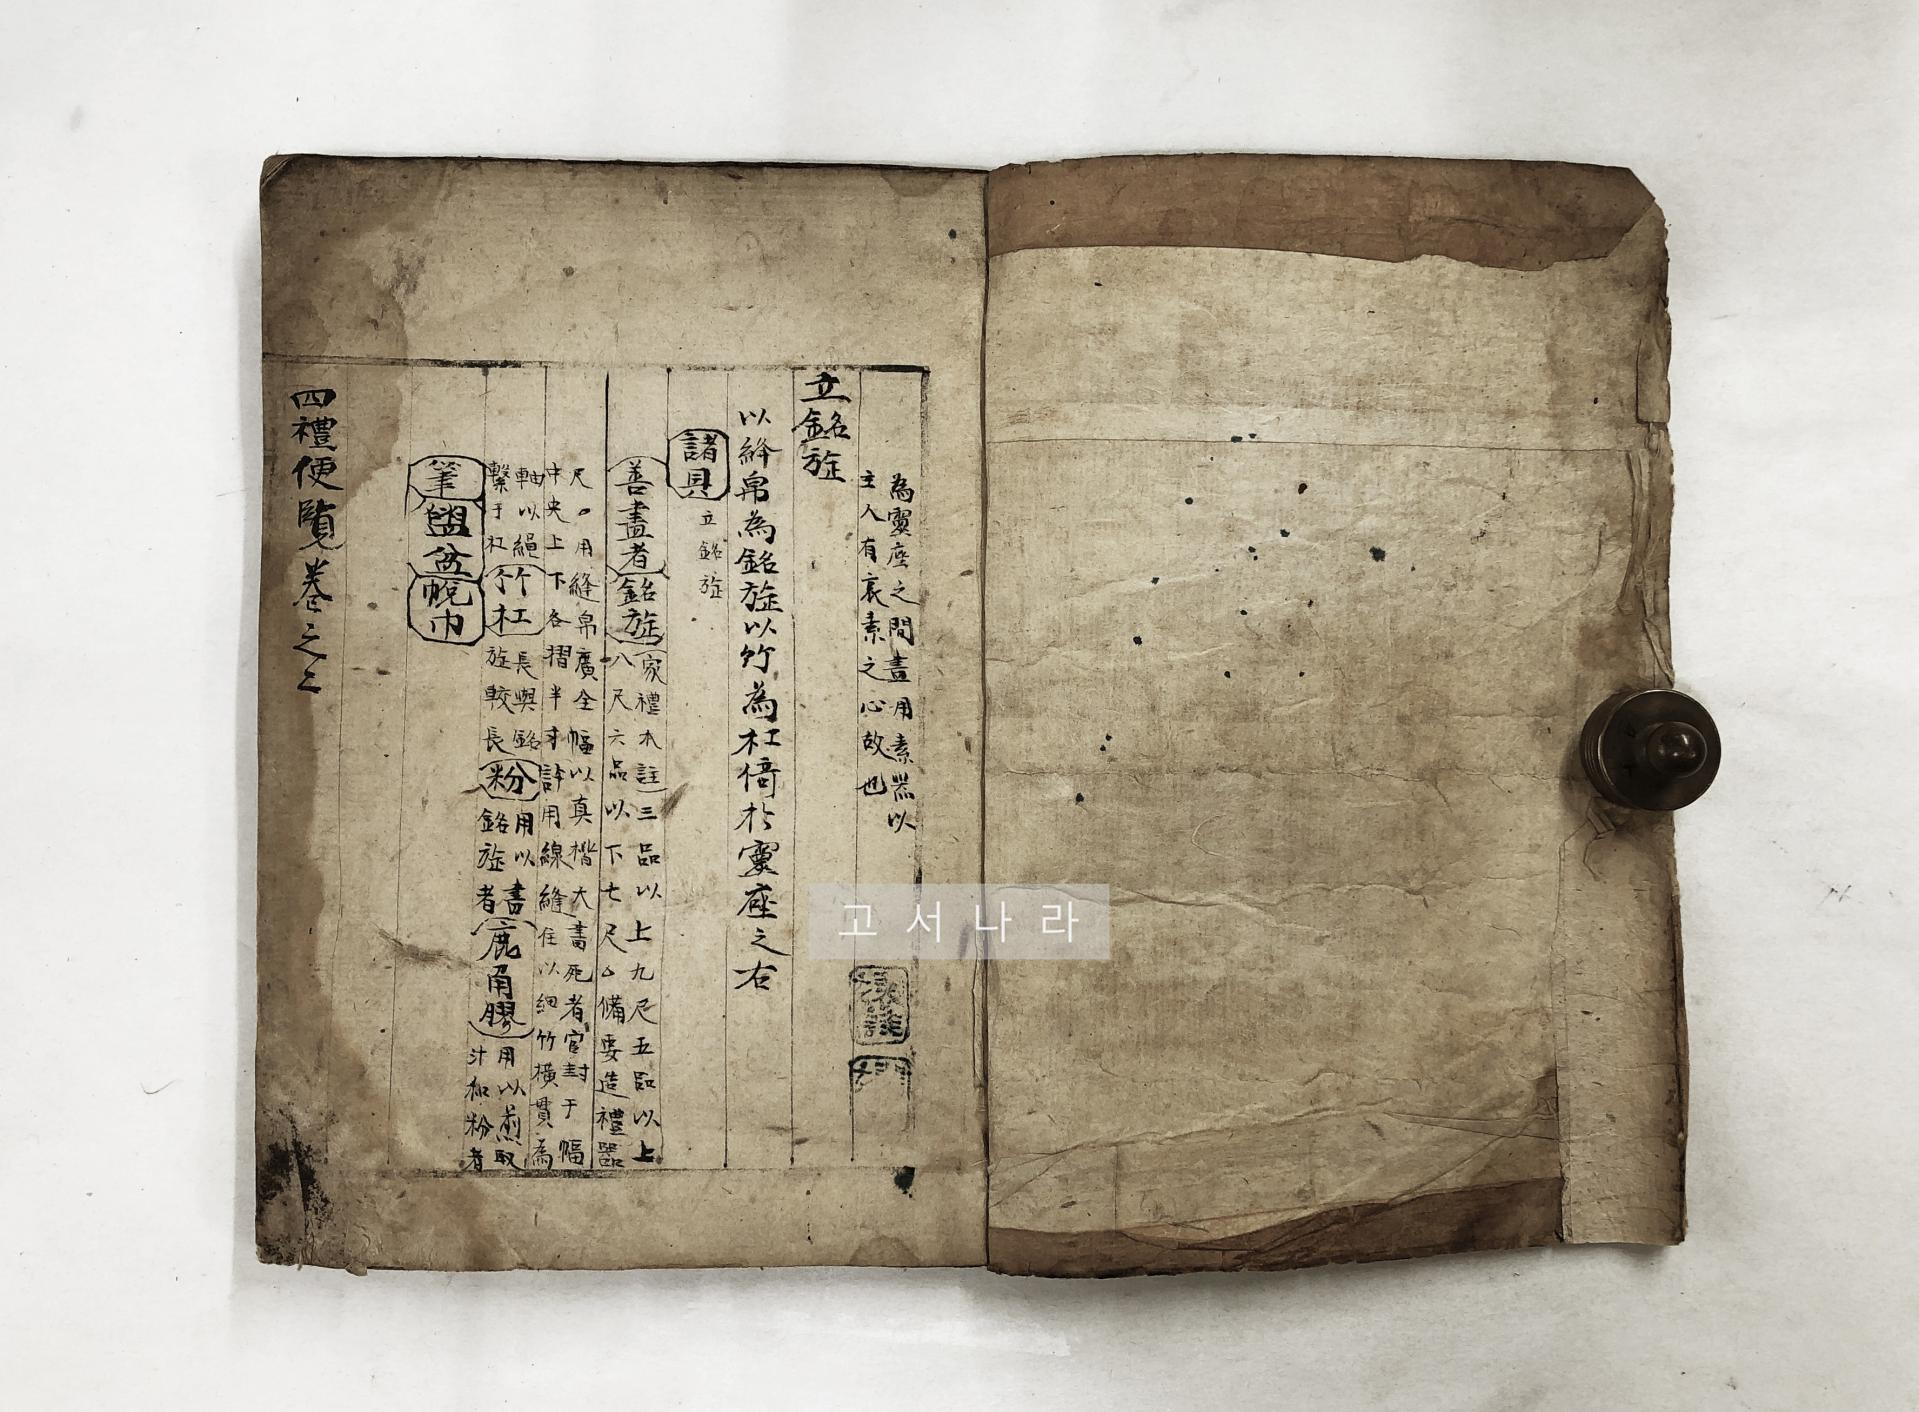 為靈座之間盡用素器以
主人有哀素之心故也
立銘旌
以絳帛為銘旌以竹為杠倚於靈座之右
諸具
立銘旌
善書者
銘旌
家禮本註三品以上九尺五品以上
八尺六品以下七尺備要造禮器
尺用絳帛廣全幅以真楷大書死者官封于幅
中央上下各摺半寸許用線縫住以細竹橫貫為
軸以繩
繫于杠
竹杠
長與銘
旌較長
粉
用以書
銘旌者
鹿角膠
用以煎取
汁和粉者
筆
盥盆
帨巾
四禮便覽卷之三
고서나라